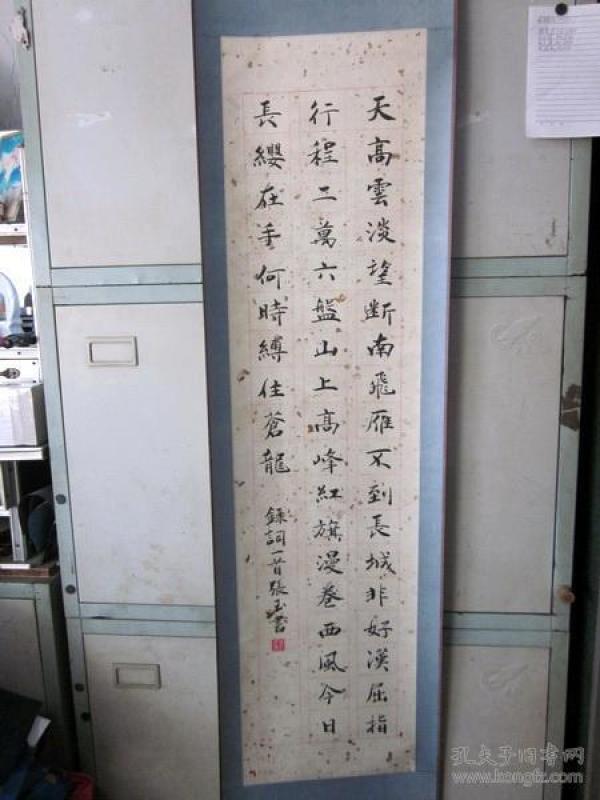 天高雲淡望斷南飛雁不到長城非好漢屈指
行程二萬六盤山上高峰紅旗漫卷西風今日
長纓在手何時縛住蒼龍
錄詞一首張玉書
孔夫子旧书网
www.kongfz.com